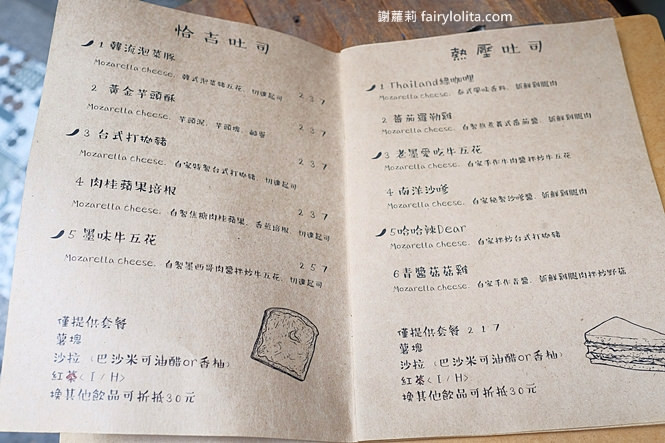 謝蘿莉 fairylolita.com
恰吉吐司
1 韓流泡菜豚
Mozarella cheese、韓式泡菜豬五花、切達起司 237
2 黃金芋頭酥
Mozarella cheese、芋頭泥、芋頭塊、鹹蛋 237
3 台式打拋豬
Mozarella cheese、自家特製台式打拋豬、切達起司 237
4 肉桂蘋果培根
Mozarella cheese、自製焦糖肉桂蘋果、香菇培根、切達起司 237
5 墨味牛五花
Mozarella cheese、自製墨西哥肉醬拌炒牛五花、切達起司 257
僅提供套餐
薯塊
沙拉（巴沙米可油醋or香柚）
紅茶（I/H）
換其他飲品可折抵30元
熱壓吐司
1 Thailand綠咖哩
Mozarella cheese、泰式風味香料、新鮮雞腿肉
2 蕃茄羅勒雞
Mozarella cheese、自製熬煮義式蕃茄醬、新鮮雞腿肉
3 老墨愛吃牛五花
Mozarella cheese、自家手作牛肉醬拌炒牛五花
4 南洋沙嗲
Mozarella cheese、自家秘製沙嗲醬、新鮮雞腿肉
5 哈哈辣Dear
Mozarella cheese、自家拌炒台式打拋豬
6 青醬菇菇雞
Mozarella cheese、自家手作青醬、新鮮雞腿肉拌炒野菇
僅提供套餐 217
薯塊
沙拉（巴沙米可油醋or香柚）
紅茶（I/H）
換其他飲品可折抵30元